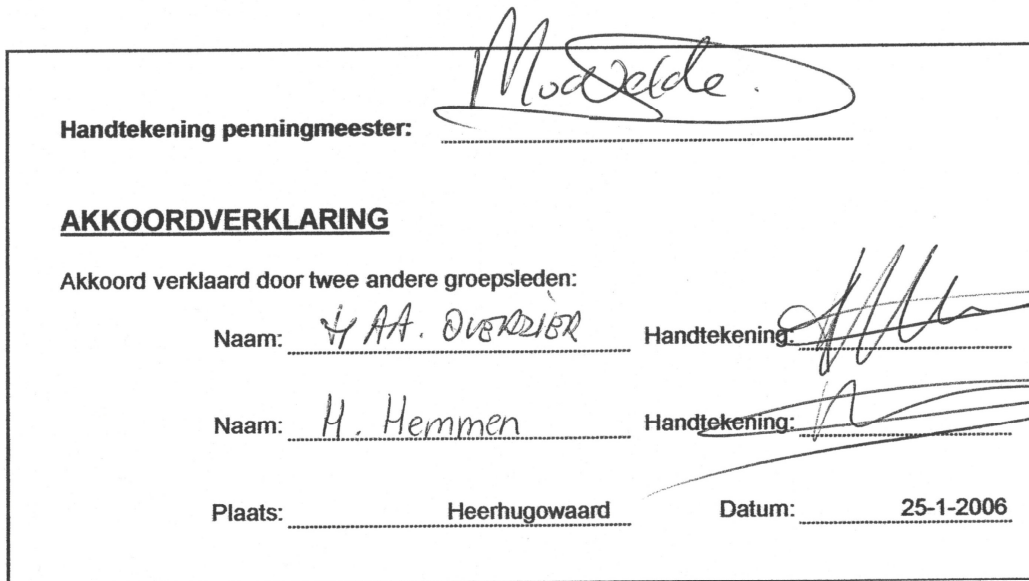 Handtekening penningmeester:
AKKOORDVERKLARING
Akkoord verklaard door twee andere groepsleden:
Naam: AA. OVERZIER Handtekening:
Naam: H. Hemmen Handtekening:
Plaats: Heerhugowaard Datum: 25-1-2006